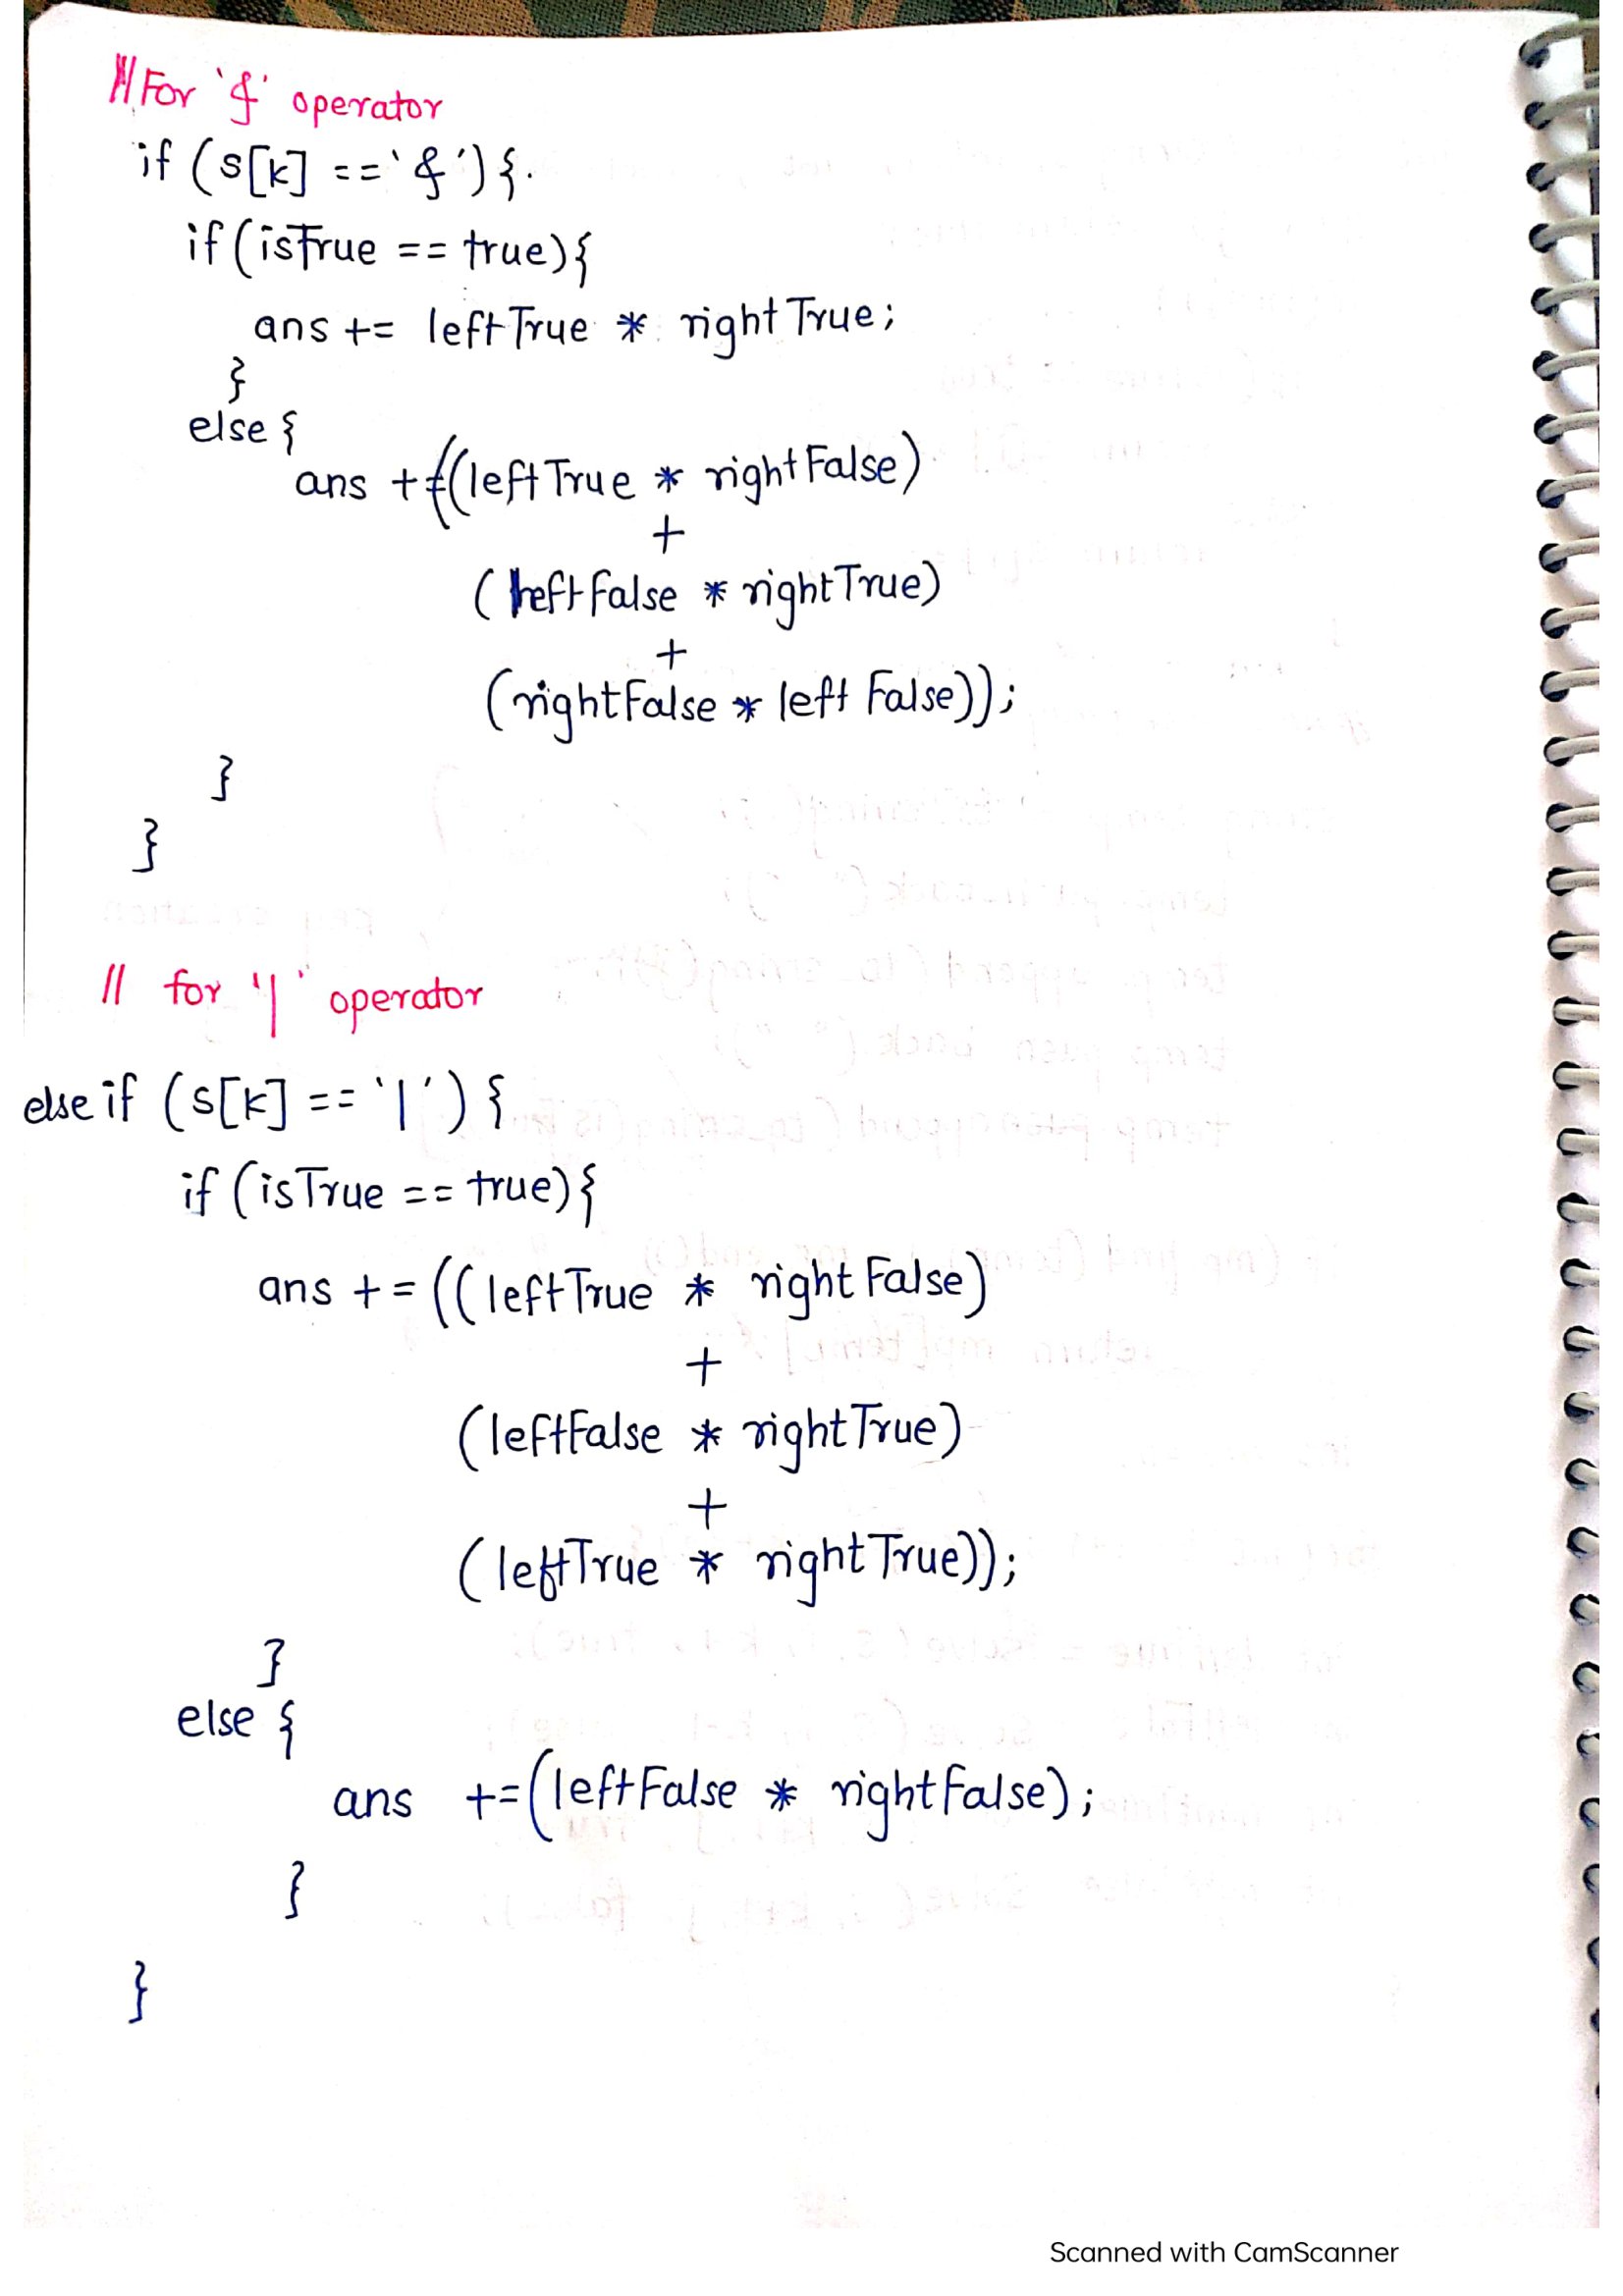 // For '&' operator
if (s[k] == '&') {
if (isTrue == true) {
ans += leftTrue * rightTrue;
}
else {
ans += ((leftTrue * rightFalse)
+
(leftFalse * rightTrue)
+
(rightFalse * leftFalse));
}
}
// for '|' operator
else if (s[k] == '|') {
if (isTrue == true) {
ans += ((leftTrue * rightFalse)
+
(leftFalse * rightTrue)
+
(leftTrue * rightTrue));
}
else {
ans += (leftFalse * rightFalse);
}
}
Scanned with CamScanner